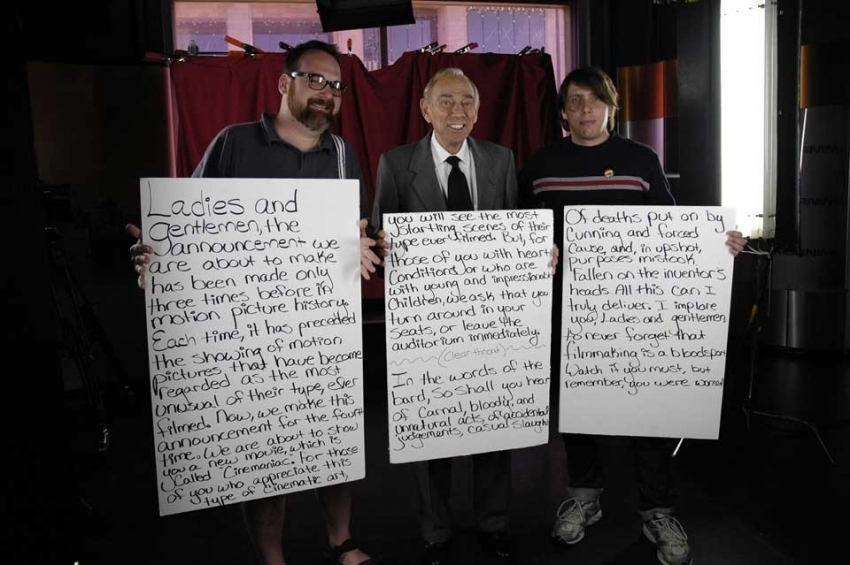 Ladies and
gentlemen, the
announcement we
are about to make
has been made only
three times before in
motion picture history.
Each time, it has preceded
the showing of motion
pictures that have become
regarded as the most
unusual of their type, ever
filmed. Now, we make this
announcement for the fourth
time. We are about to show
you a new movie, which is
called 'Cinemaniac. For those
of you who appreciate this
type of cinematic art,
you will see the most
startling scenes of their
type ever filmed. But, for
those of you with heart
Conditions or who are
with young and impressionable
Children, we ask that you
turn around in your
seats, or leave the
auditorium immediately.
(Clear throat)
In the words of the
bard, So shall you hear
of Carnal, bloody, and
unnatural acts, of accidental
judgements, casual slaughters
Of deaths put on by
Cunning and forced
Cause, and, in upshot,
purposes mistook
Fallen on the inventor's
heads. All this can I
truly deliver. I implore
you, Ladies and gentlemen,
to never forget that
filmmaking is a bloodsport.
Watch if you must, but
remember, you were warned